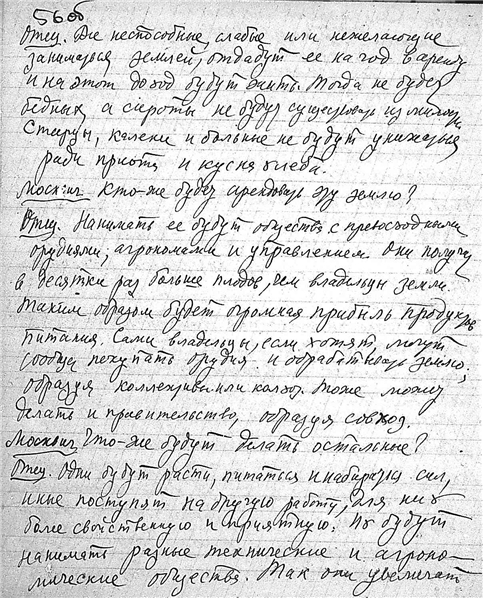 5б об
Отец. Две неспособные, слабые или нежелающие
заниматься землей, отдадут ее на год в аренду
и на этот доход будут жить. Тогда не будет
бедных, а сироты не будут существовать из милости.
Старцы, калеки и больные не будут унижаться
ради приюта и куска хлеба.
Москвич. Кто-же будет арендовать эту землю?
Отец. Нанимать ее будут общества с превосходными
орудиями, агрономами и управлением. Они получат
в десятки раз больше плодов, чем владельцы земли.
Таким образом будет огромная прибыль продуктов
питания. Сами владельцы, если хотят, могут
сообща покупать орудия и обрабатывать землю,
образуя коллективы или колхоз. Тоже может
делать и правительство, образуя совхоз.
Москвич. Что-же будут делать остальные?
Отец. Одни будут расти, питаться и набираться сил,
иные поступят на другую работу, для них
более свойственную и приятную. Их будут
нанимать разные технические и агроно-
мические общества. Так они увеличат